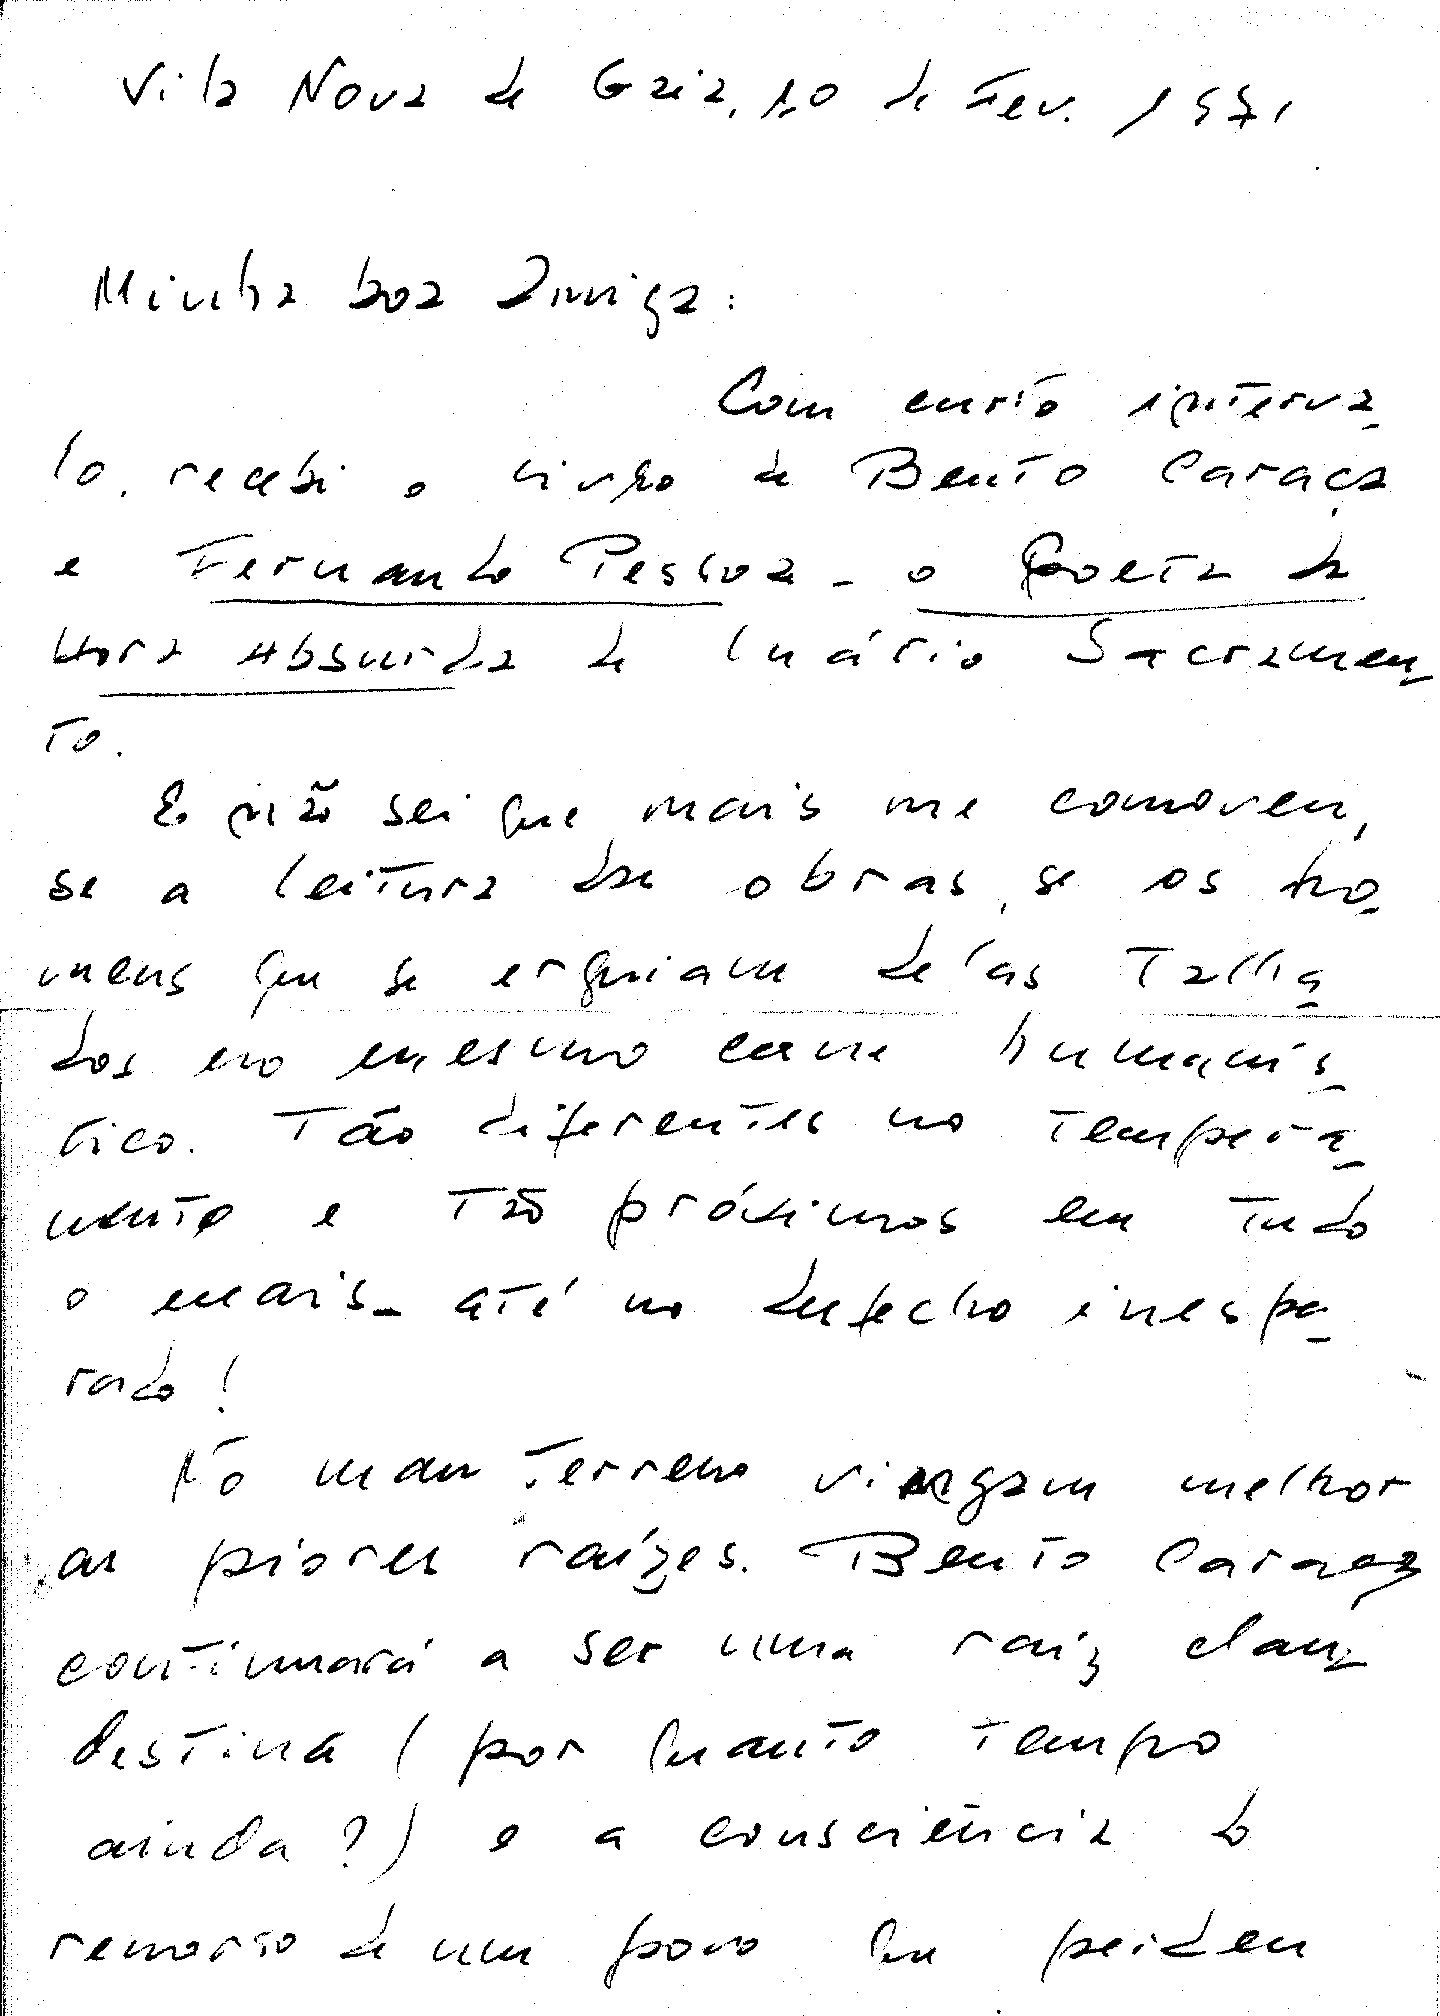 Vila Nova de Gaia, 10 de Fev. 1971
Minha boa Amiga:
Com curto interva-
lo, recebi o livro de Bento Caraça
e Fernando Pessoa - o Poeta da
Hora Absurda de Mário Sacramen-
to.
E não sei que mais me comoveu,
se a leitura das obras, se os ho-
mens que se erguiam delas talha-
dos no mesmo cerne humanís-
tico. Tão diferentes no tempera-
mento e tão próximos em tudo
o mais - até no desfecho inespe-
rado!
No mau terreno vingam melhor
as piores raízes. Bento Caraça
continuará a ser uma raiz clan-
destina (por quanto tempo
ainda?) e a consciência do
remorso de um povo que perdeu